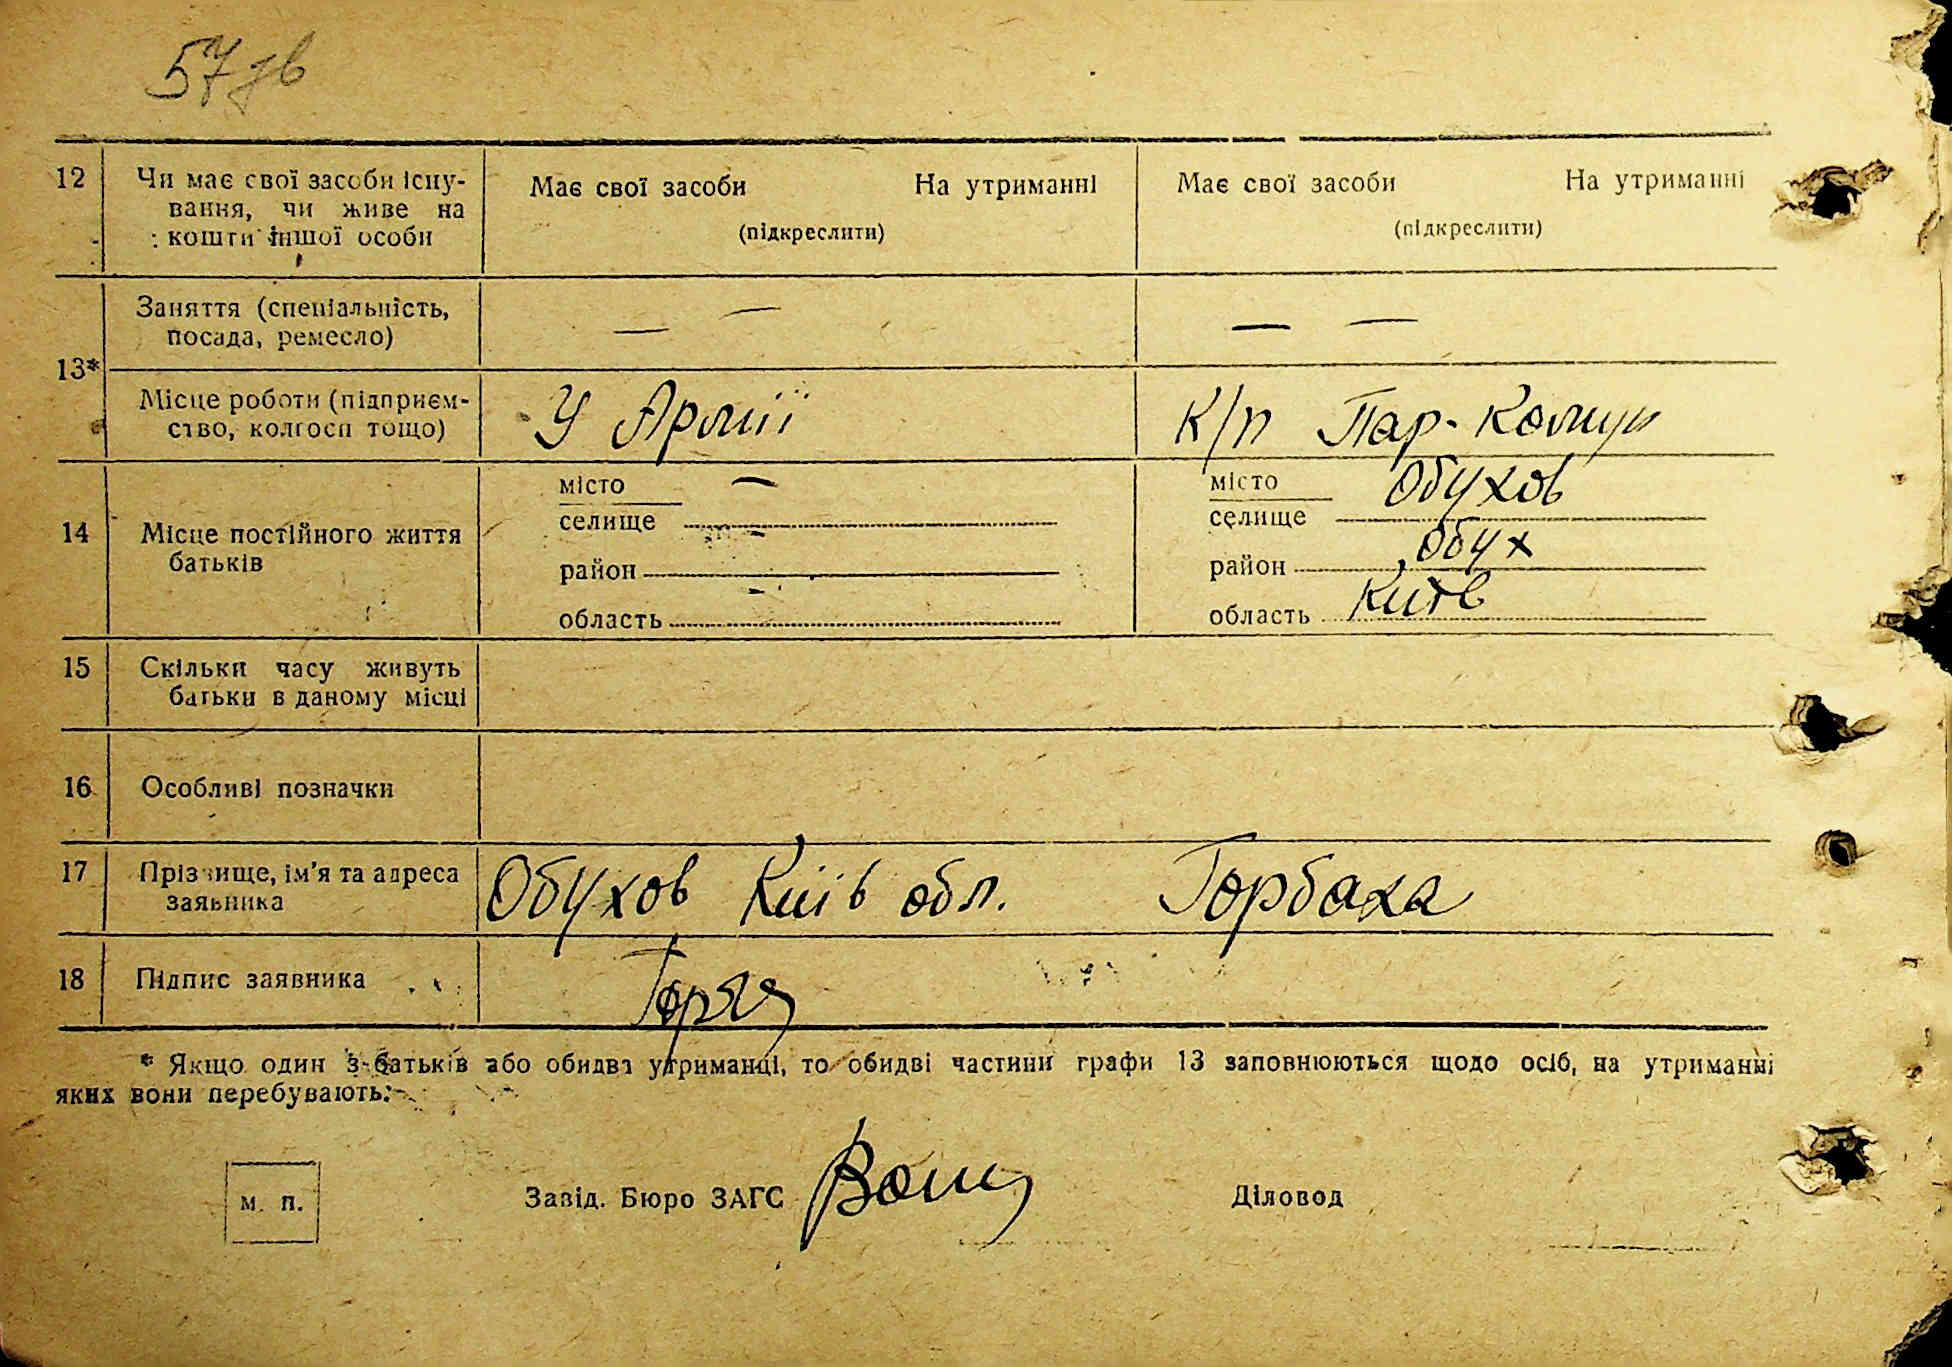 57 зв
12 Чи має свої засоби існу-
вання, чи живе на
кошти іншої особи
Має свої засоби На утриманні
(підкреслити)
Має свої засоби На утриманні
(підкреслити)
13*
Заняття (спеціальність,
посада, ремесло)
— —
— —
Місце роботи (підприєм-
ство, колгосп тощо)
У Армії
К/п Пар-Комун
14 Місце постійного життя
батьків
місто —
селище
район
область
місто Обухов
селище
район Обух
область Київ
15 Скільки часу живуть
батьки в даному місці
16 Особливі позначки
17 Прізвище, ім'я та адреса
заявника
Обухов Київ обл. Горбаха
18 Підпис заявника
* Якщо один з батьків або обидва утриманці, то обидві частини графи 13 заповнюються щодо осіб, на утриманні
яких вони перебувають.
м. п.
Завід. Бюро ЗАГС
Діловод